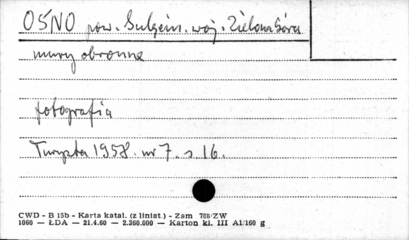 OŚNO pow. Sulęcin. woj. Zielona Góra
mury obronne
fotografia
Turysta 1958. nr 7. s 16.
CWD - B 15b - Karta katal. (z liniat.) - Zam 788/ZW
1060 — ŁDA — 21.4.60 — 2.360.000 — Karton kl. III A1/160 g